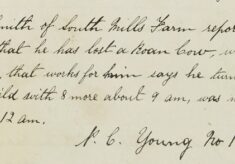 mith of South Mills Farm repor
that he has lost a Roan Cow, w
, that works for him says he turn
ild with 8 more about 9 am, was m
12 am.
P. C. Young No